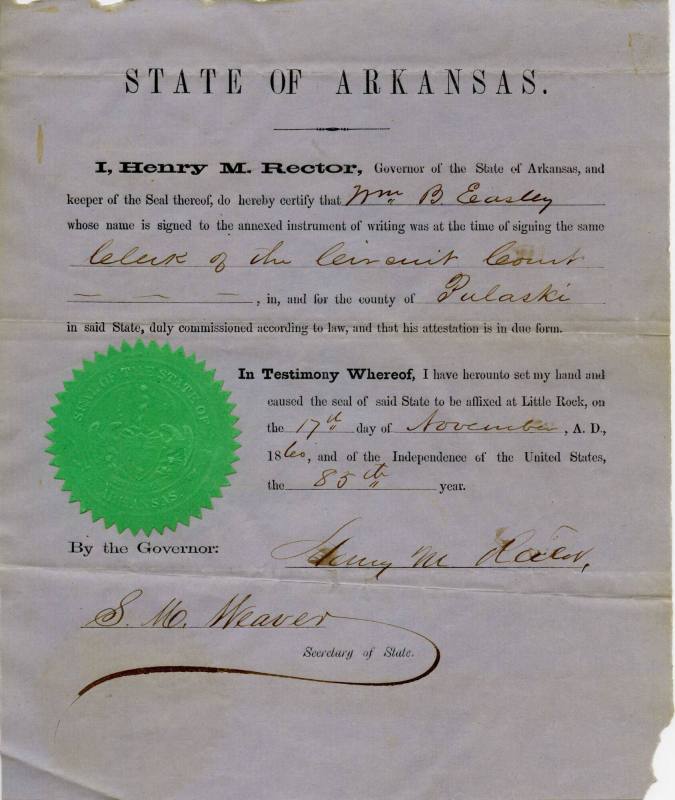 STATE OF ARKANSAS.
I, Henry M. Rector, Governor of the State of Arkansas, and
keeper of the Seal thereof, do hereby certify that Wm B. Easley
whose name is signed to the annexed instrument of writing was at the time of signing the same
Clerk of the Circuit Court
— — —, in, and for the county of Pulaski
in said State, duly commissioned according to law, and that his attestation is in due form.
In Testimony Whereof, I have herounto set my hand and
caused the seal of said State to be affixed at Little Rock, on
the 17th day of November, A. D.,
1860, and of the Independence of the United States,
the 85th year.
SEAL OF THE STATE OF
ARKANSAS
By the Governor:
Henry M Rector,
S. M. Weaver
Secretary of State.